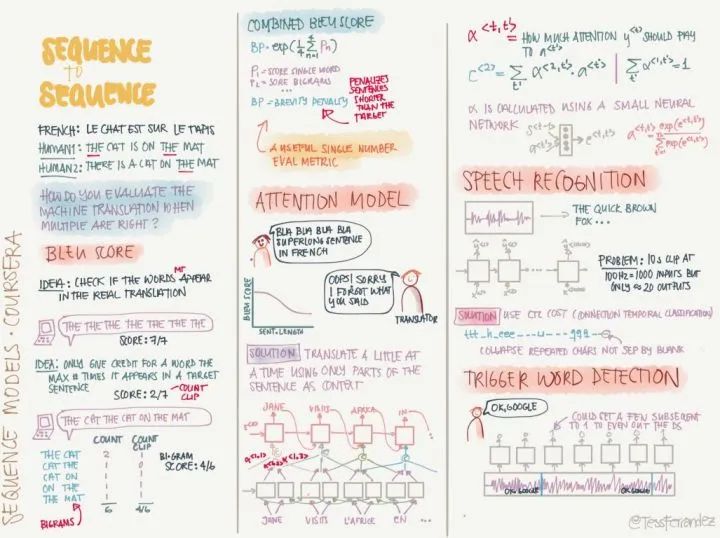 SEQUENCE MODELS · COURSERA
SEQUENCE
to
SEQUENCE
FRENCH: LE CHAT EST SUR LE TAPIS
HUMAN1: THE CAT IS ON THE MAT
HUMAN2: THERE IS A CAT ON THE MAT
HOW DO YOU EVALUATE THE
MACHINE TRANSLATION WHEN
MULTIPLE ARE RIGHT?
BLEU SCORE
IDEA: CHECK IF THE WORDS MT APPEAR
IN THE REAL TRANSLATION
THE THE THE THE THE THE THE
SCORE: 7/7
IDEA: ONLY GIVE CREDIT FOR A WORD THE
MAX # TIMES IT APPEARS IN A TARGET
SENTENCE
SCORE: 2/7
COUNT
CLIP
THE CAT THE CAT ON THE MAT
COUNT COUNT CLIP
THE CAT 2 1
CAT THE 1 0
CAT ON 1 1
ON THE 1 1
THE MAT 1 1
6 4/6
BIGRAM
SCORE: 4/6
BIGRAMS
COMBINED BLEU SCORE
BP · exp(1/4 Σ Pn)
n=1
4
P1 = SCORE SINGLE WORD
P2 = SCORE BIGRAMS
...
BP = BREVITY PENALTY
PENALIZES
SENTENCES
SHORTER
THAN THE
TARGET
A USEFUL SINGLE NUMBER
EVAL METRIC
ATTENTION MODEL
BLA BLA BLA BLA
SUPERLONG SENTENCE
IN FRENCH
OOPS! SORRY
I FORGOT WHAT
YOU SAID
TRANSLATOR
BLEU SCORE
SENT. LENGTH
SOLUTION: TRANSLATE A LITTLE AT
A TIME USING ONLY PARTS OF THE
SENTENCE AS CONTEXT
JANE VISITS AFRICA IN...
JANE VISITS L'AFRICE EN ...
α<t,t'> = HOW MUCH ATTENTION y<t> SHOULD PAY
TO a<t'>
c<2> = Σ α<2,t'> · a<t'> | Σ α<1,t'> = 1
t' t'
α IS CALCULATED USING A SMALL NEURAL
NETWORK
s<t-1>
a<t'>
e<t,t'>
SPEECH RECOGNITION
THE QUICK BROWN
FOX...
PROBLEM: 10s CLIP AT
100Hz = 1000 INPUTS BUT
ONLY ≈ 20 OUTPUTS
SOLUTION USE CTC COST (CONNECTION TEMPORAL CLASSIFICATION)
COLLAPSE REPEATED CHARS NOT SEP BY BLANK
TRIGGER WORD DETECTION
OK, GOOGLE
COULD SET A FEW SUBSEQENT
TO 1 TO EVEN OUT THE DS
OK GOOGLE OK GOOGLE
@TessFerrandez